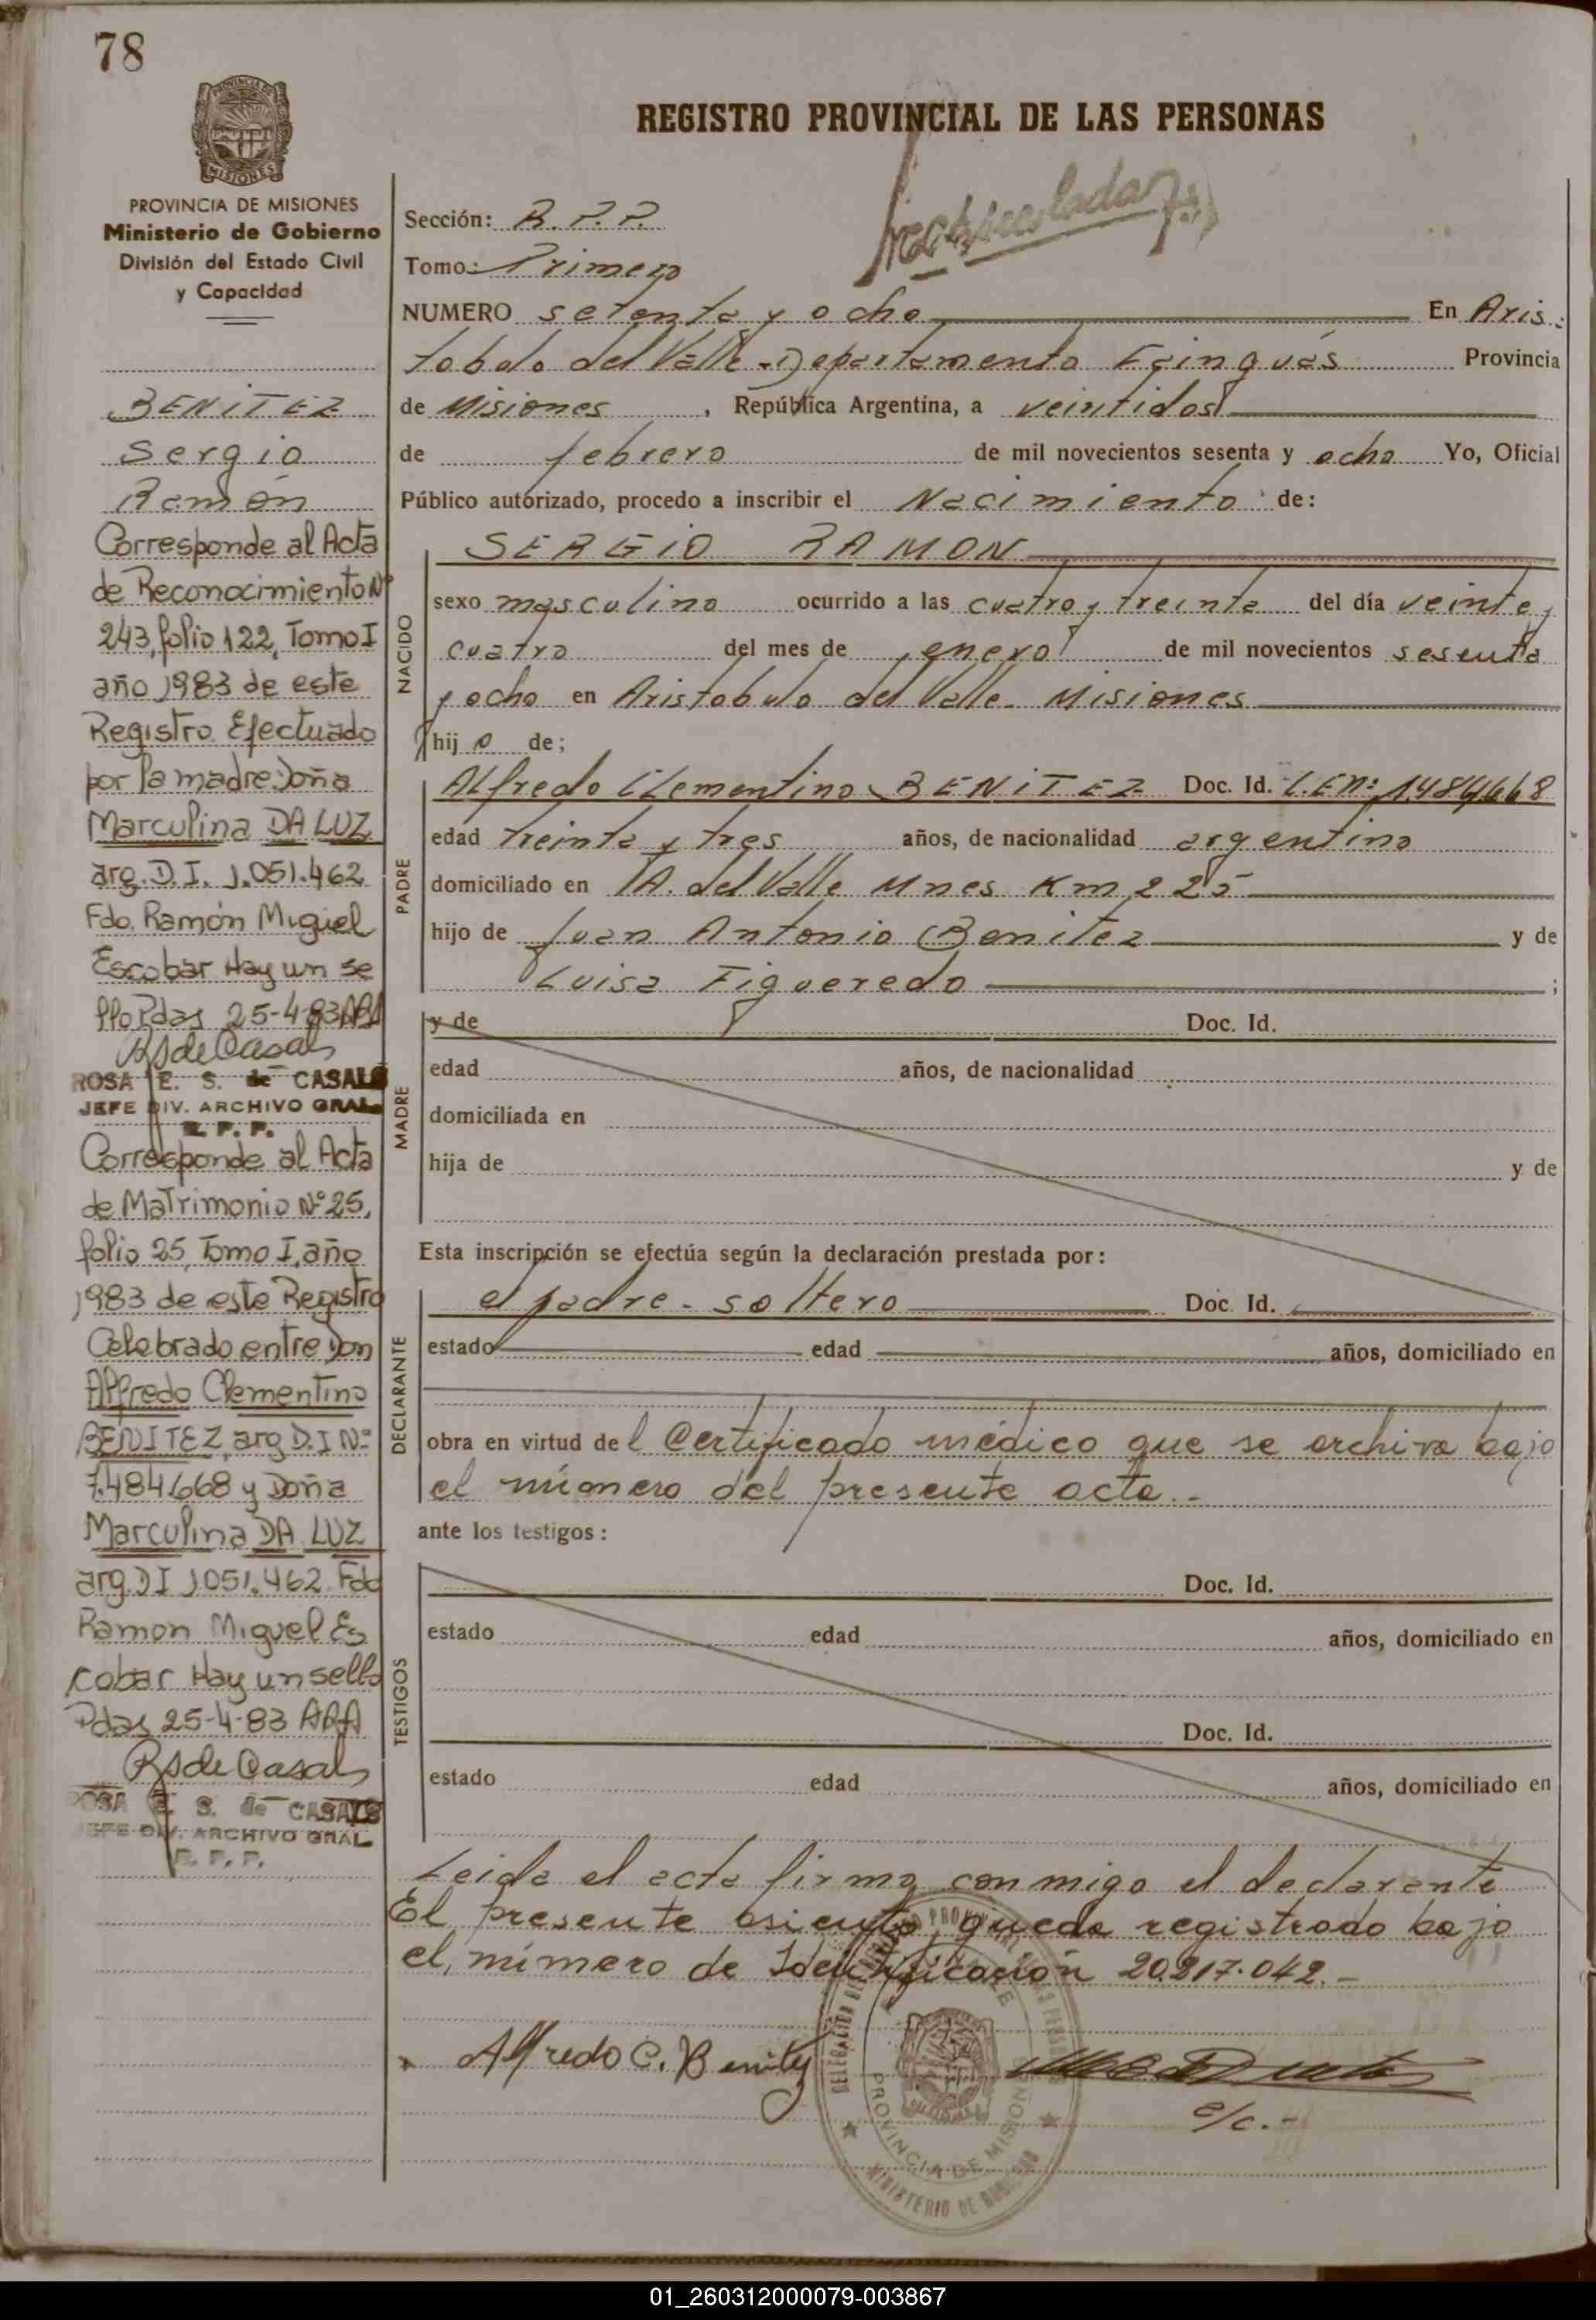 78
PROVINCIA DE MISIONES
PROVINCIA DE MISIONES
Ministerio de Gobierno
División del Estado Civil
y Capacidad
BENITEZ
Sergio
Ramón
Corresponde al Acta
de Reconocimiento Nº
243, folio 122, Tomo I
año 1983 de este
Registro Efectuado
por la madre Doña
Marculina DA LUZ
arg. D.I. 1.051.462
Fdo. Ramón Miguel
Escobar Hay un se
llo Pdas 25-4-83 ARA
RSdeCasals
ROSA E. S. de CASALS
JEFE DIV. ARCHIVO GRAL.
R. P. P.
Corresponde al Acta
de Matrimonio Nº 25,
folio 25, Tomo I, año
1983 de este Registro
Celebrado entre Don
Alfredo Clementino
BENITEZ, arg D.I Nº
7.484.668 y Doña
Marculina DA LUZ
arg. DI 1.051.462. Fdo
Ramon Miguel Es
cobar Hay un sello
Pdas 25-4-83 ARA
RSdeCasals
ROSA E. S. de CASALS
JEFE DIV. ARCHIVO GRAL.
R. P. P.
REGISTRO PROVINCIAL DE LAS PERSONAS
Sección: R.P.P.
Tomo: Primero
NUMERO setenta y ocho En Aris-
tobulo del Valle - Departamento Cainguás Provincia
de Misiones, República Argentina, a veintidos
de febrero de mil novecientos sesenta y ocho Yo, Oficial
Público autorizado, procedo a inscribir el Nacimiento de:
NACIDO
SERGIO RAMON
sexo masculino ocurrido a las cuatro y treinta del día veinte y
cuatro del mes de enero de mil novecientos sesenta
y ocho en Aristobulo del Valle - Misiones
hijo de;
PADRE
Alfredo Clementino BENITEZ Doc. Id. L.E nº 7.484.668
edad treinta y tres años, de nacionalidad argentino
domiciliado en A. del Valle Mnes Km 225
hijo de Juan Antonio Benitez y de
Luisa Figueredo ;
MADRE
y de Doc. Id.
edad años, de nacionalidad
domiciliada en
hija de y de
Esta inscripción se efectúa según la declaración prestada por:
DECLARANTE
el padre - soltero Doc. Id.
estado edad años, domiciliado en
obra en virtud del Certificado médico que se archiva bajo
el número del presente acta.-
ante los testigos:
TESTIGOS
Doc. Id.
estado edad años, domiciliado en
Doc. Id.
estado edad años, domiciliado en
Leida el acta firma conmigo el declarante
El presente asiento, queda registrado bajo
el número de Identificación 20.217.042.-
Alfredo C. Benitez
e/c.-
PROVINCIA DE MISIONES
MINISTERIO DE GOBIERNO
01_260312000079-003867